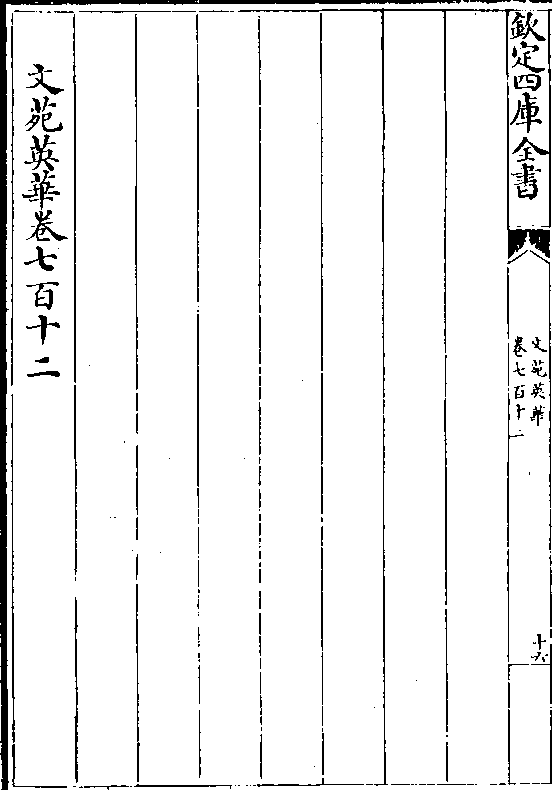 欽定四庫全書
文苑英華
卷七百十二
十六
文苑英華卷七百十二